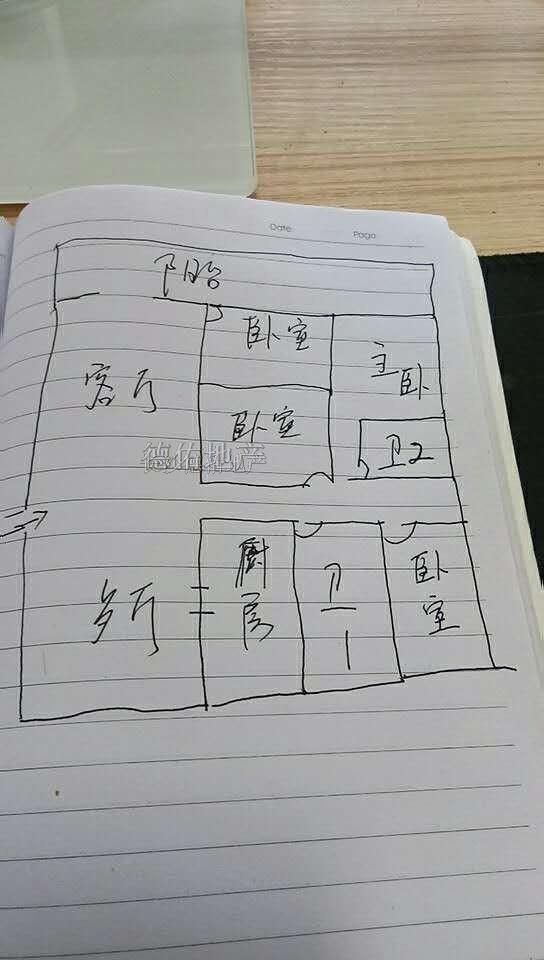 Date
Page
阳台
卧室
主卧
客厅
卧室
卫2
德佑地产
厨房
卫1
卧室
多厅